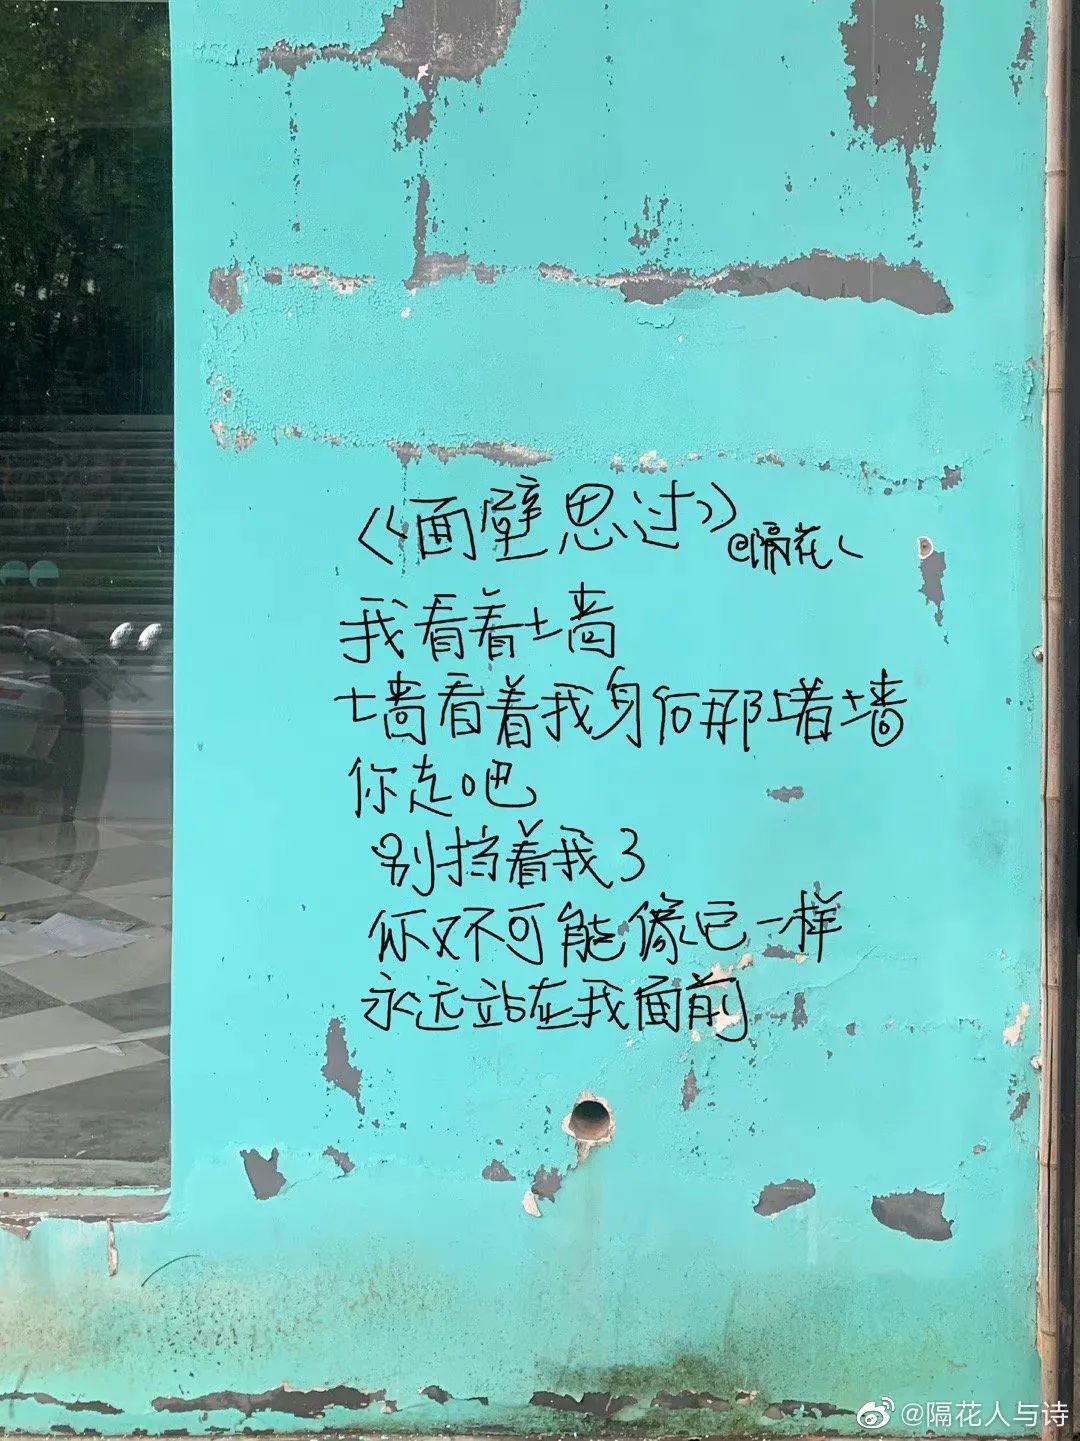 《面壁思过》
@隔花人
我看着墙
墙看着我身后那堵墙
你走吧
别挡着我了
你又不可能像它一样
永远站在我面前
@隔花人与诗